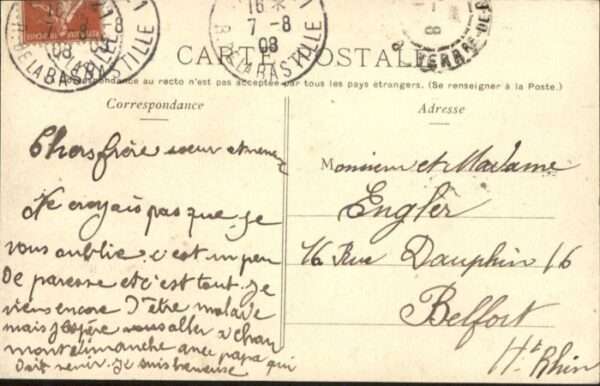 16
7-8
08
R. DE LA BASTILLE
CARTE POSTALE
La Correspondance au recto n'est pas acceptée par tous les pays étrangers. (Se renseigner à la Poste.)
Correspondance
Chers frère soeur et neveu
Ne croyais pas que je
vous oublie c'est un peu
De paresse et c'est tout. Je
viens encore D'être malade
mais j'espère vous aller
dimanche avec papa qui
Doit venir. Je suis heureuse
Adresse
Monsieur et Madame
Engler
16 Rue Dauphin 16
Belfort
Ht Rhin